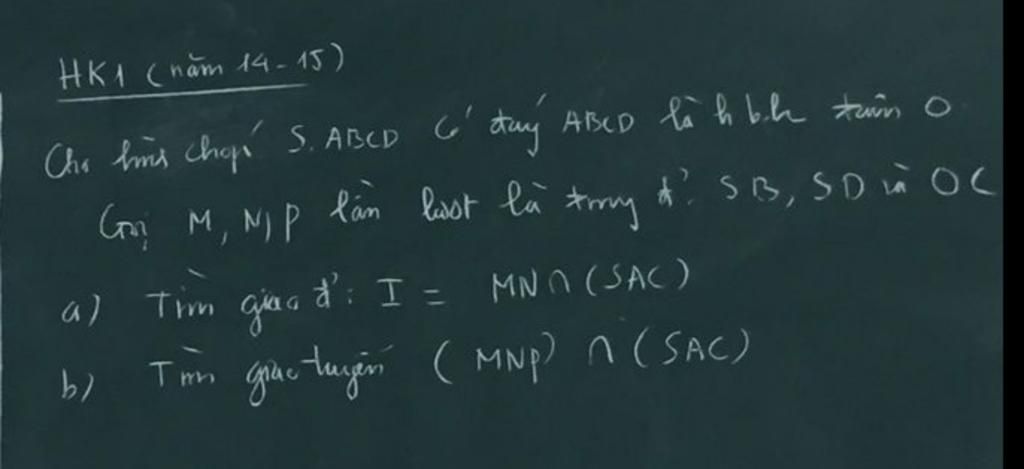 HK1 (năm 14-15)
Cho hình chóp S.ABCD có đáy ABCD là h.b.h tâm O
Gọi M, N, P lần lượt là trung đ' SB, SD và OC
a) Tìm giao đ': I = MN ∩ (SAC)
b) Tìm giao tuyến (MNP) ∩ (SAC)